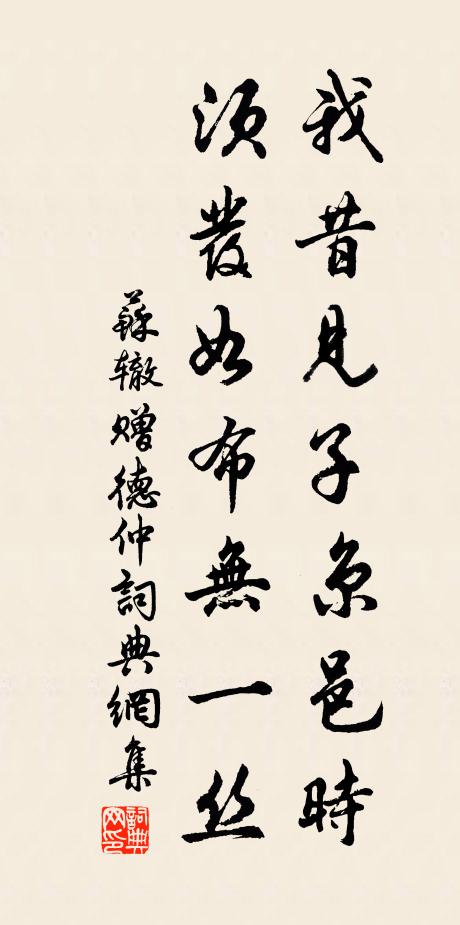 我昔見子京邑時
須發如布無一丝
蘇辙赠德仲詞典網集
詞典网印